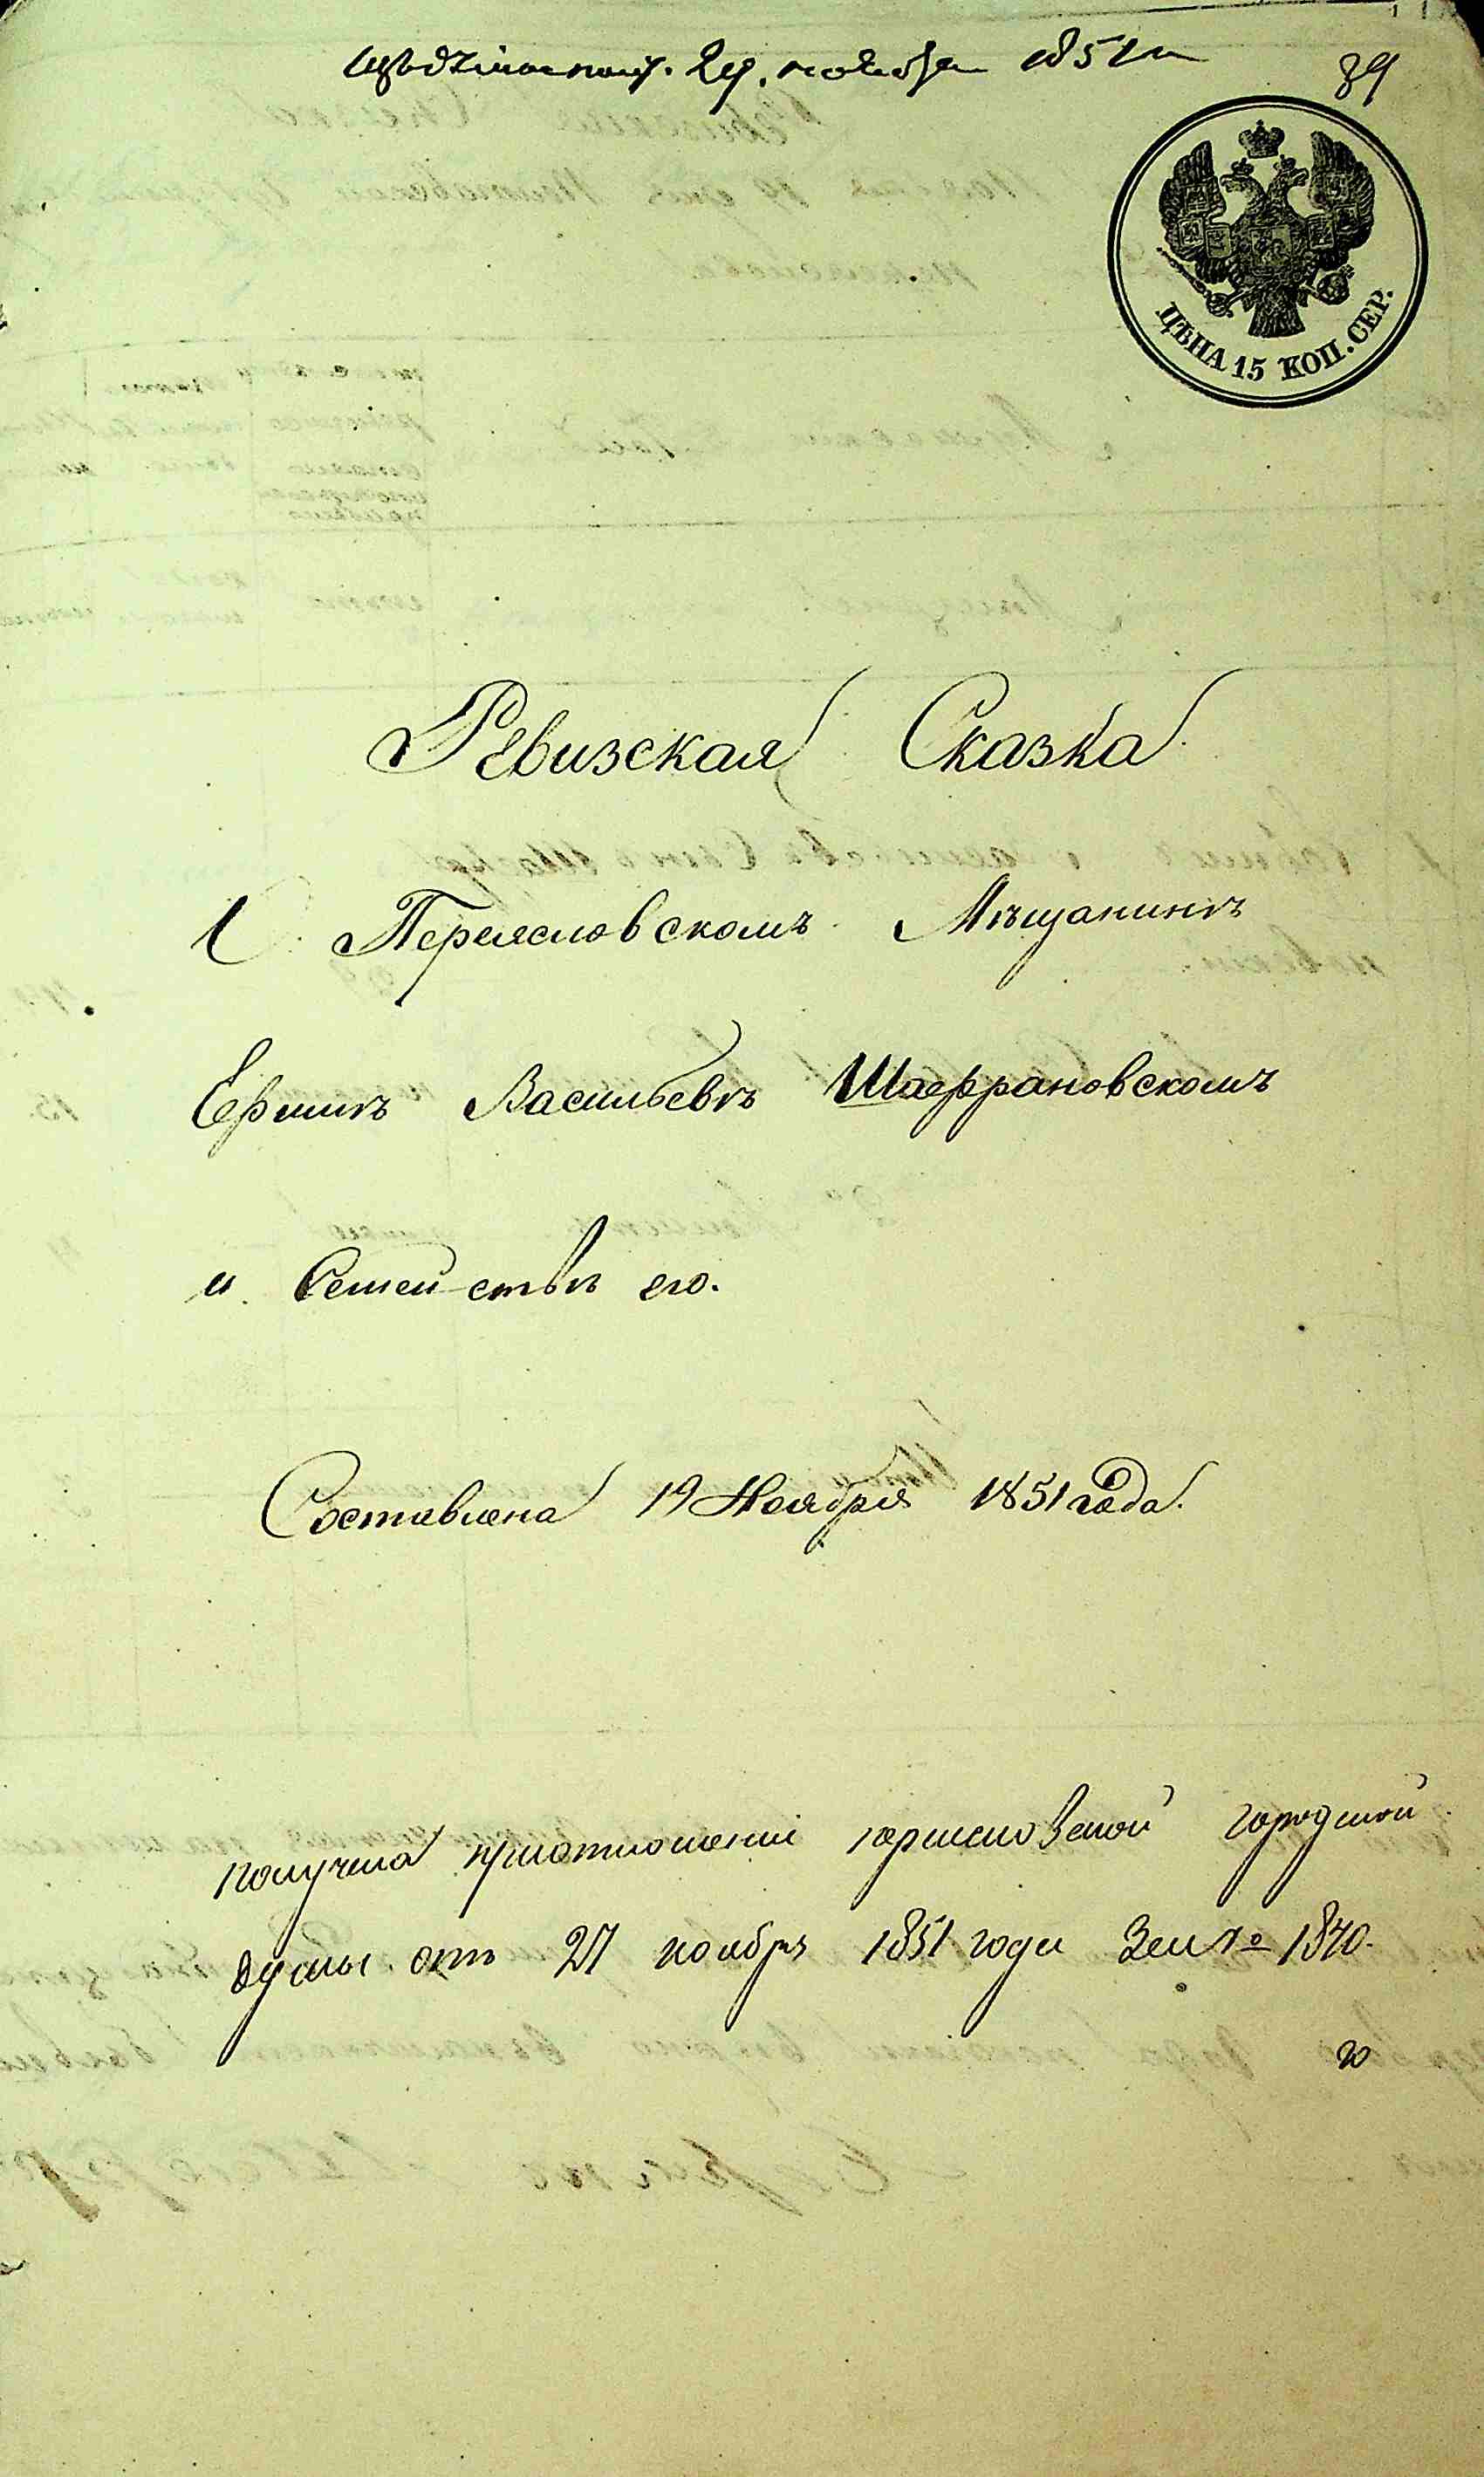 29. ноября 1851 г.
89
ЦѢНА 15 КОП. СЕР.
Ревизская Сказка
О Переясловскомъ Мѣщанинѣ
Ефимѣ Васильевѣ Шафрановскомъ
и Семействѣ его.
Составлена 19 Ноября 1851 года.
получена при отношеніи переясловской городской
думы отъ 27 ноября 1851 года За № 1840.